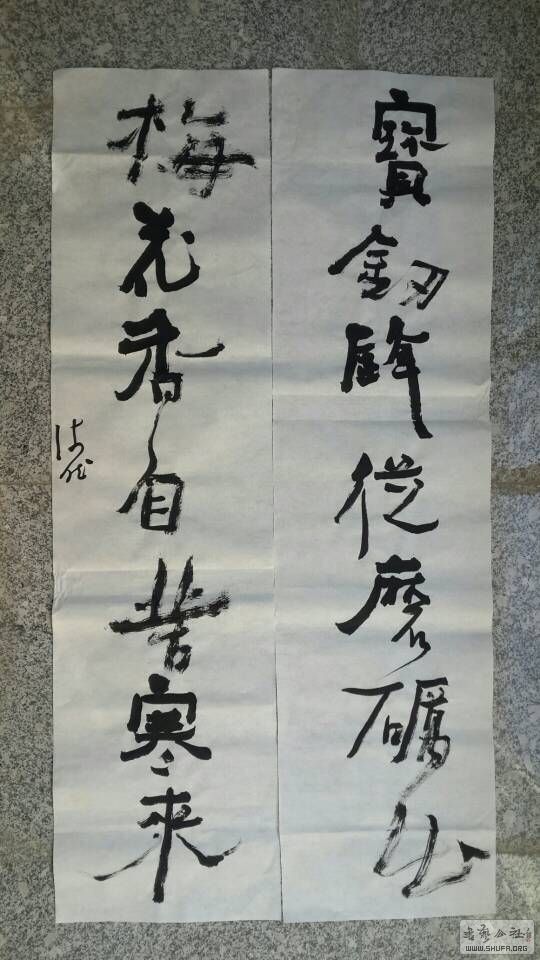 寶釰鋒從磨礪出
梅花香自苦寒來
WWW.SHUFA.ORG